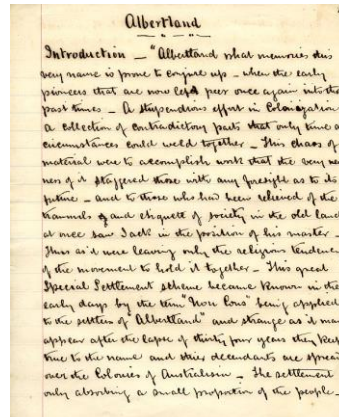 Albertland
Introduction _ "Albertland what memories this
very name is prone to conjure up _ when the early
pioneers that are now left peer once again into the
past times _ A stupendous effort in Colonization
a collection of contradictory parts that only time &
circumstances could weld together _ This chaos of
material were to accomplish work that the very
ness of it staggered those with any foresight as to its
future _ and to those who had been relieved of the
trammels and etiquete of society in the old land
at once saw Jack in the position of his master _
Thus as it were leaving only the religious tendency
of the movement to hold it together _ This great
Special Settlement scheme became known in the
early days by the term "Non Cons" being applied
to the settlers of "Albertland" and strange as it may
appear after the lapse of thirty four years they keep
true to the name and their decendants are spread
over the Colonies of Australasia _ The settlement
only absorbing a small proportion of the people _